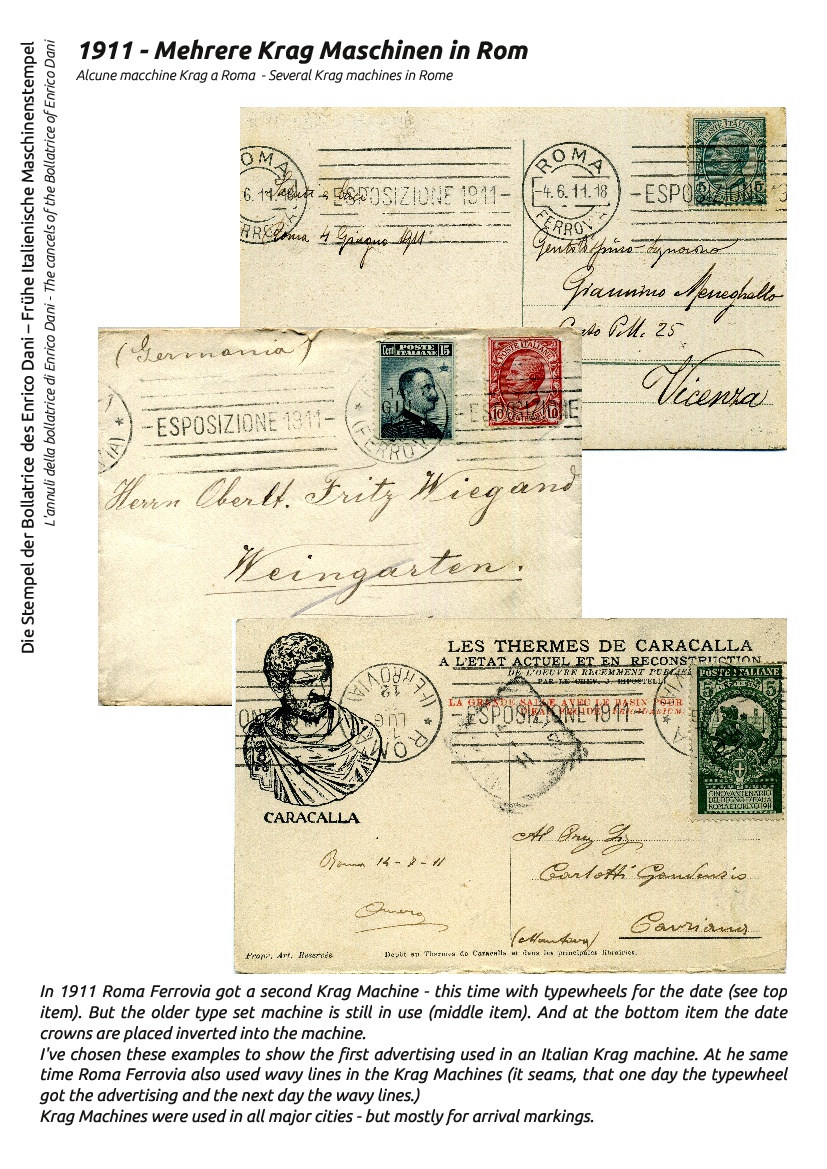 1911 - Mehrere Krag Maschinen in Rom
Alcune macchine Krag a Roma - Several Krag machines in Rome
Die Stempel der Bollatrice des Enrico Dani – Frühe Italienische Maschinenstempel
L'annuli della bollatrice di Enrico Dani - The cancels of the Bollatrice of Enrico Dani
ROMA
6.11.18
FERROVIA
ESPOSIZIONE 1911-
Roma 4 Giugno 1911
ROMA
-4.6.11.18
FERROVIA
-ESPOSIZIONE
POSTE ITALIANE
Giannino Meneghello
Posto P.M. 25
Vicenza
(Germania)
-ESPOSIZIONE 1911-
Cent. POSTE ITALIANE 15
GIU
(FERROVIA)
POSTE ITALIANE
10 10
-ESPOSIZIONE
Herrn Oberlt. Fritz Wiegand
Weingarten.
LES THERMES DE CARACALLA
A L'ETAT ACTUEL ET EN RECONSTRUCTION
DE L'OEUVRE RECEMMENT PUBLIÉE
PAR LE CHEV. J. RIPOSTELLI
LA GRANDE SALLE AVEC LE BASSIN POUR
(FERROVIA)
12
LUG
ROMA
-ESPOSIZIONE 1911-
11
POSTE ITALIANE
5 5
CINQVANTENARIO
DEL REGNO D'ITALIA
ROMA E TORINO 1911
CARACALLA
Roma 12-7-11
Carlotti Gaudenzio
Cavriana
(Mantova)
Propr. Art. Reservée
Depôt au Thermes de Caracalla et dans les principales librairies.
In 1911 Roma Ferrovia got a second Krag Machine - this time with typewheels for the date (see top
item). But the older type set machine is still in use (middle item). And at the bottom item the date
crowns are placed inverted into the machine.
I've chosen these examples to show the first advertising used in an Italian Krag machine. At he same
time Roma Ferrovia also used wavy lines in the Krag Machines (it seams, that one day the typewheel
got the advertising and the next day the wavy lines.)
Krag Machines were used in all major cities - but mostly for arrival markings.